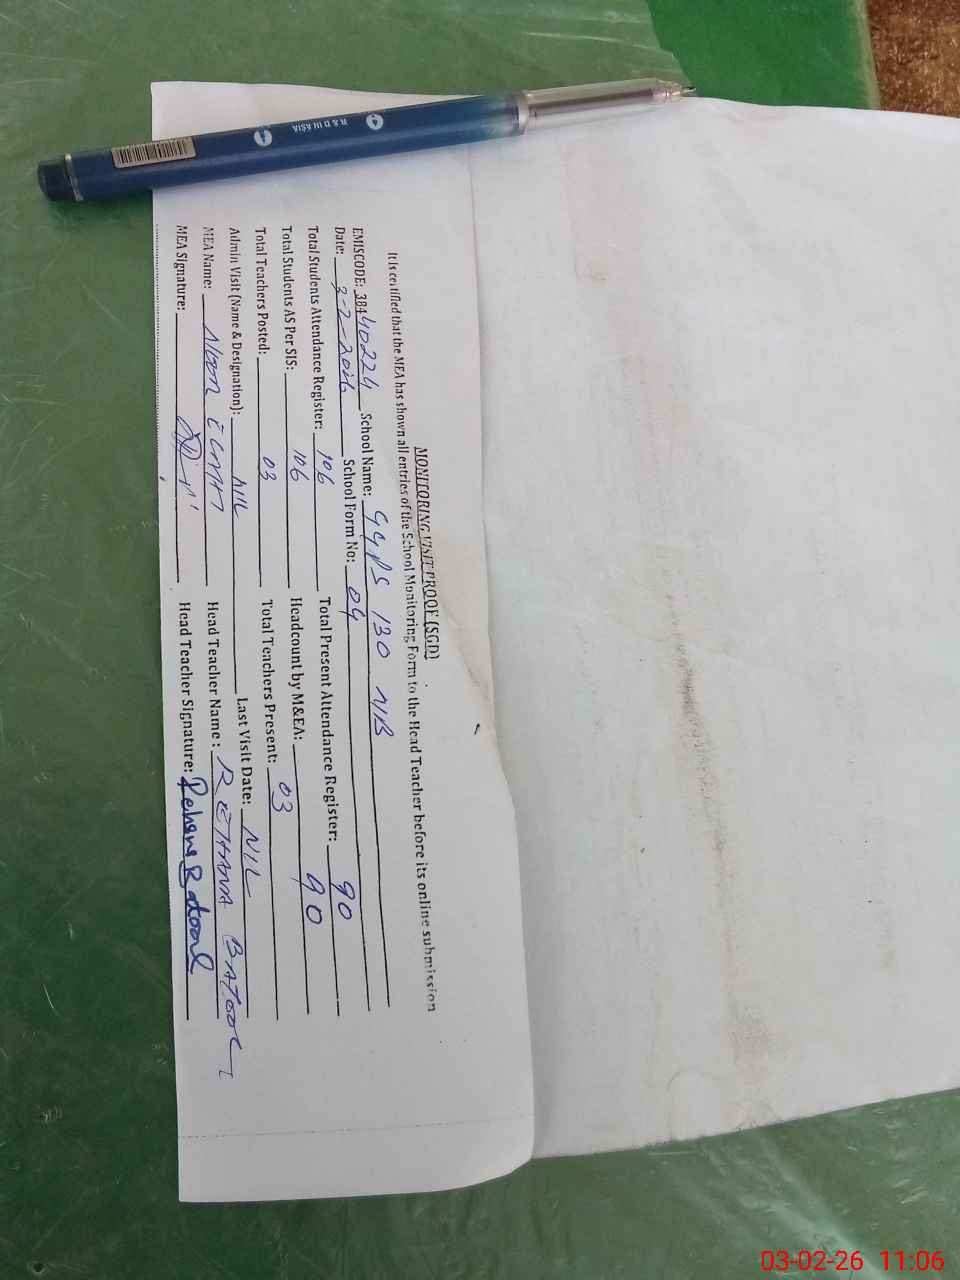 MONITORING VISIT PROOF (SGD)
It is certified that the MEA has shown all entries of the School Monitoring Form to the Head Teacher before its online submission
EMISCODE: 38440224 School Name: GGPS 130 NB
Date: 3-2-2026 School Form No: 04
Total Students Attendance Register: 106 Total Present Attendance Register: 90
Total Students AS Per SIS: 106 Headcount by M&EA: 90
Total Teachers Posted: 03 Total Teachers Present: 03
Admin Visit (Name & Designation): NIL Last Visit Date: NIL
MEA Name: Head Teacher Name: REHANA BATOOL
MEA Signature: Head Teacher Signature: Rehana Batool
R & D IN ASIA
03-02-26 11:06